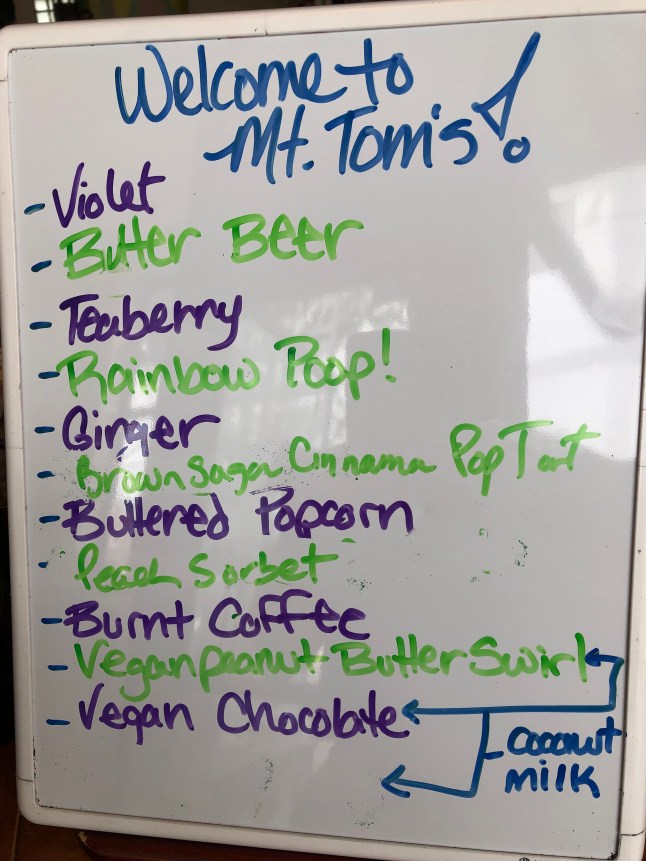 Welcome to
Mt. Tom's!
- Violet
- Butter Beer
- Teaberry
- Rainbow Poop!
- Ginger
- Brown Sugar Cinnamon Pop Tart
- Buttered Popcorn
- Peach Sorbet
- Burnt Coffee
- Vegan peanut Butter Swirl
- Vegan Chocolate
- coconut
milk